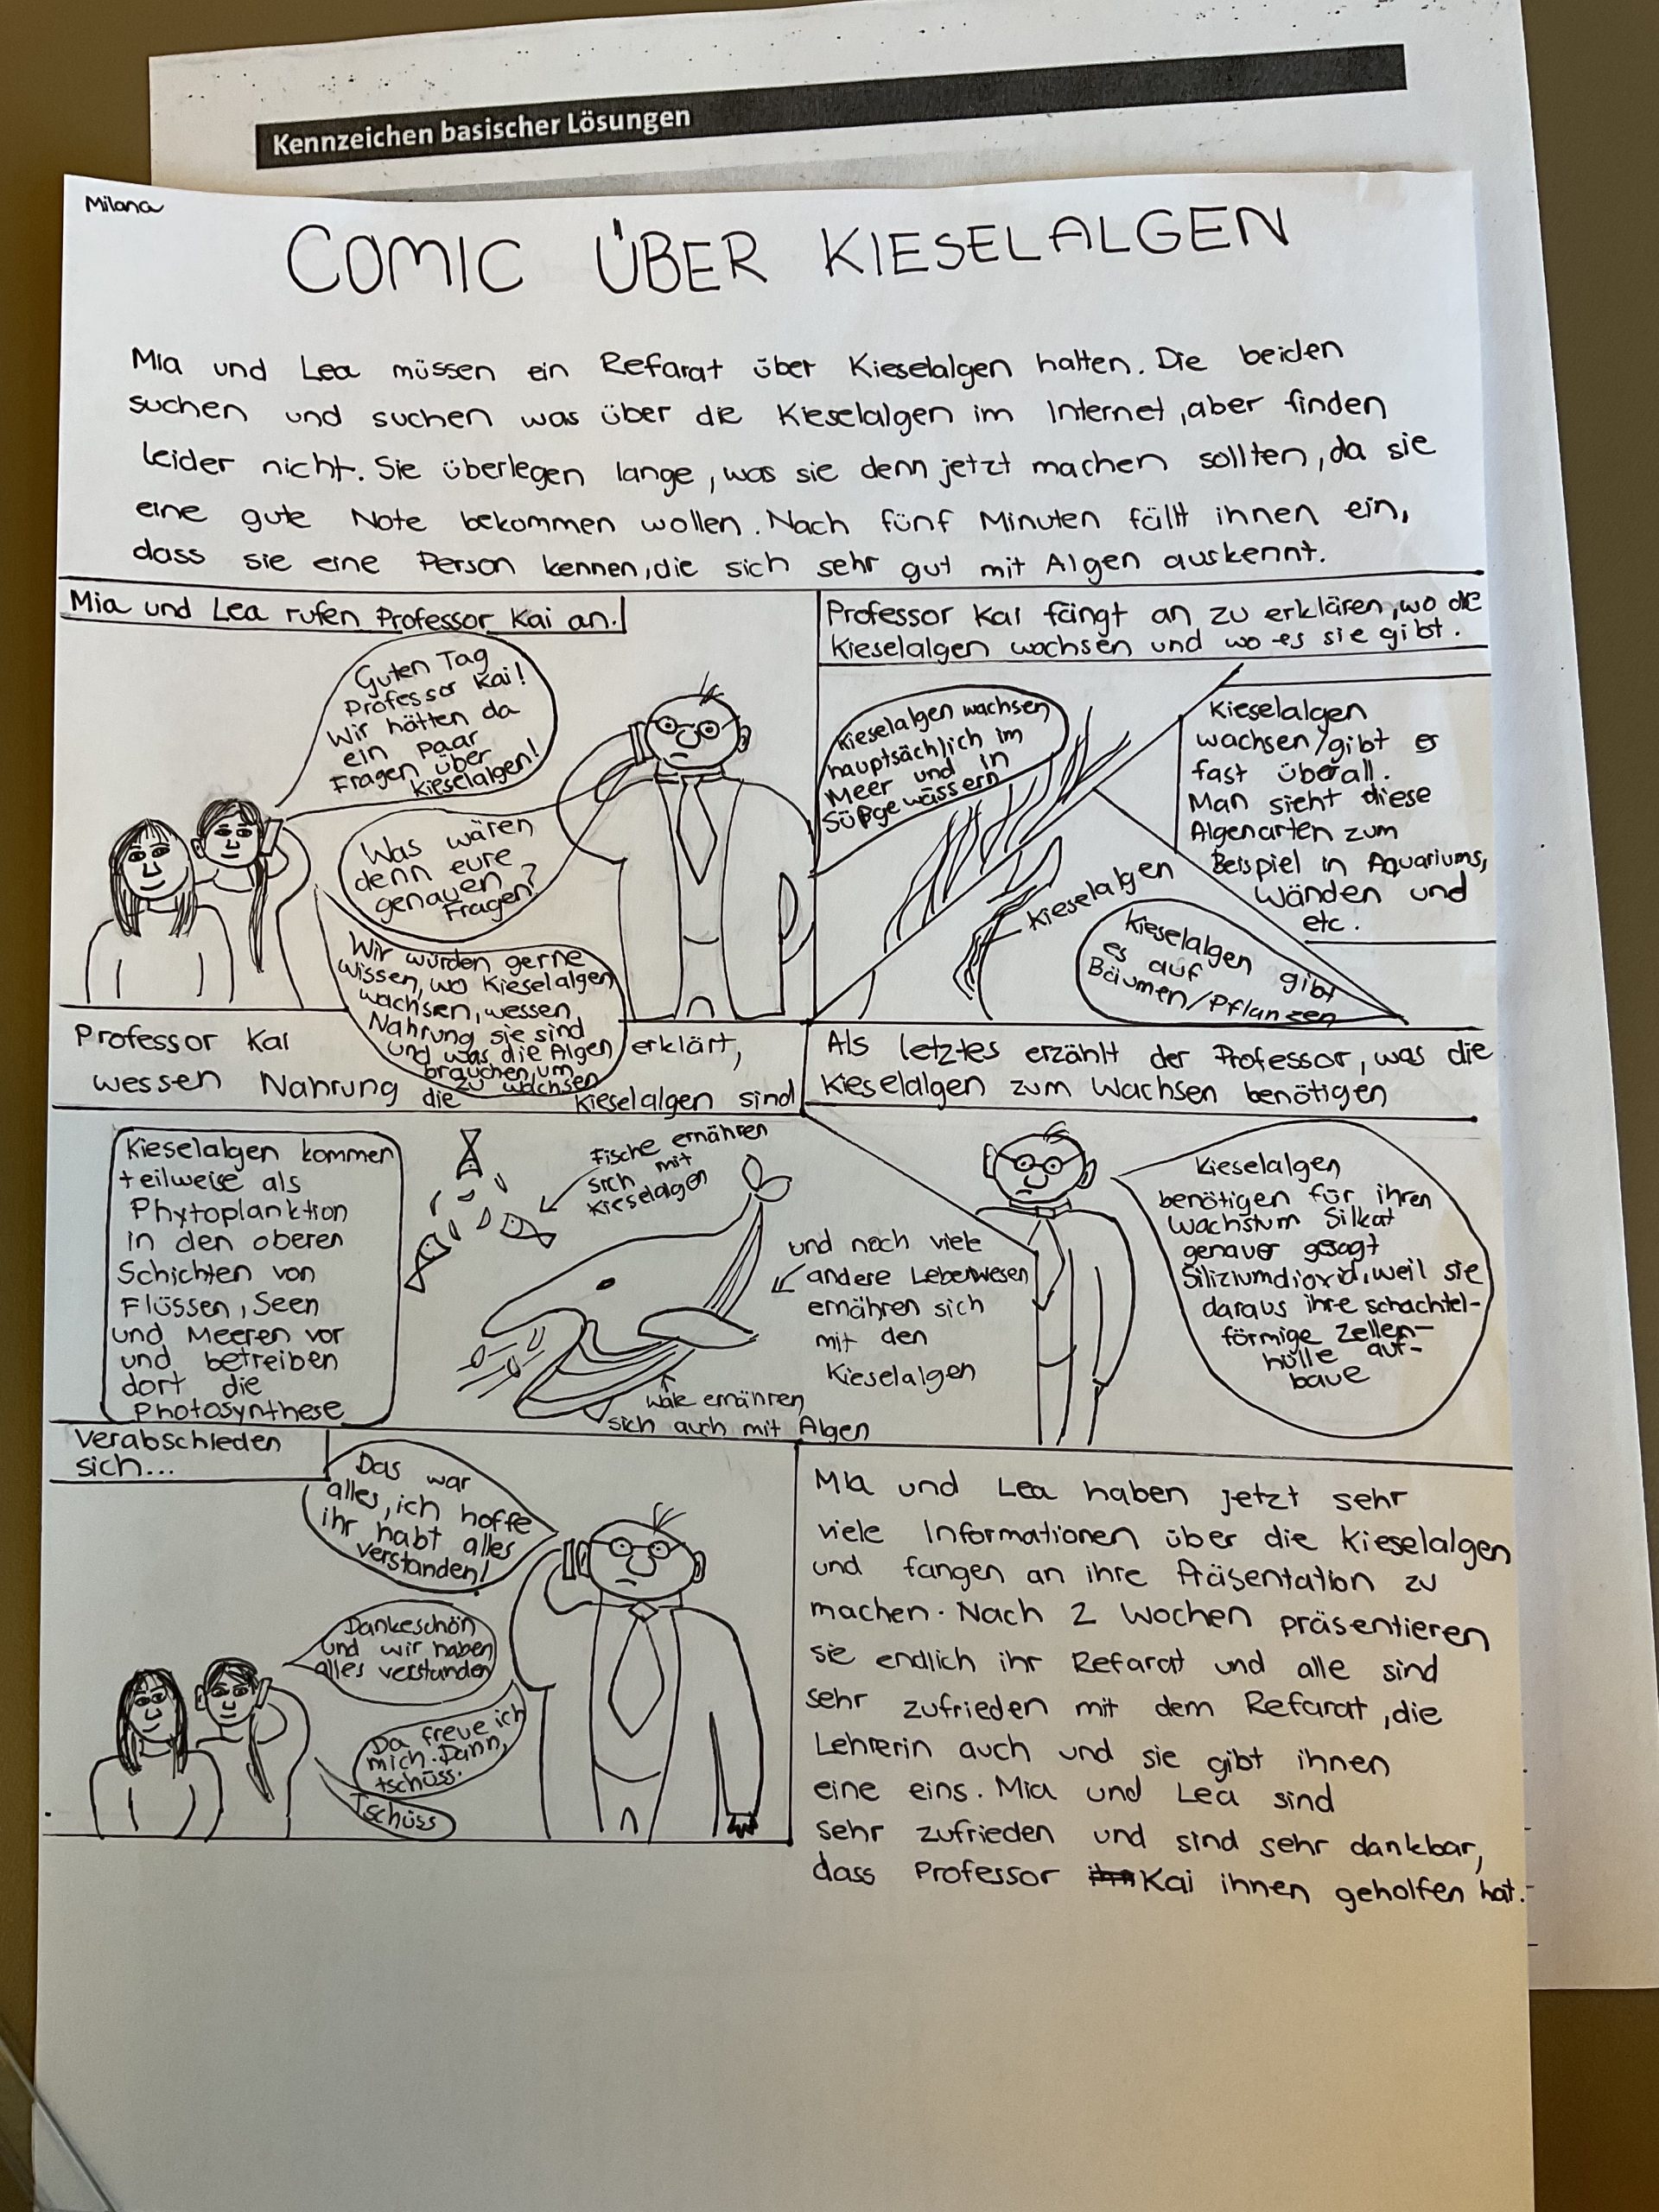 Kennzeichen basischer Lösungen
Milana
COMIC ÜBER KIESELALGEN
Mia und Lea müssen ein Refarat über Kieselalgen halten. Die beiden
suchen und suchen was über die Kieselalgen im Internet, aber finden
leider nicht. Sie überlegen lange, was sie denn jetzt machen sollten, da sie
eine gute Note bekommen wollen. Nach fünf Minuten fällt ihnen ein,
dass sie eine Person kennen, die sich sehr gut mit Algen auskennt.
Mia und Lea rufen Professor Kai an.
Guten Tag
Professor Kai!
Wir hätten da
ein paar
Fragen über
Kieselalgen!
Was wären
denn eure
genauen
Fragen?
Wir würden gerne
wissen, wo Kieselalgen
wachsen, wessen
Nahrung sie sind
und was die Algen
brauchen, um
zu wachsen
Professor Kai fängt an zu erklären, wo die
Kieselalgen wachsen und wo es sie gibt.
Kieselalgen wachsen
hauptsächlich im
Meer und in
Süßgewässern
Kieselalgen
wachsen/gibt es
fast überall.
Man sieht diese
Algenarten zum
Beispiel in Aquariums,
Wänden und
etc.
Kieselalgen
Kieselalgen gibt
es auf
Bäumen/Pflanzen
Professor Kai erklärt,
wessen Nahrung die Kieselalgen sind
Kieselalgen kommen
teilweise als
Phytoplanktion
in den oberen
Schichten von
Flüssen, Seen
und Meeren vor
und betreiben
dort die
Photosynthese
Fische ernähren
sich mit
Kieselalgen
und noch viele
andere Lebewesen
ernähren sich
mit den
Kieselalgen
Wale ernähren
sich auch mit Algen
Als letztes erzählt der Professor, was die
Kieselalgen zum Wachsen benötigen
Kieselalgen
benötigen für ihren
Wachstum Silkat
genauer gesagt
Siliziumdioxid, weil sie
daraus ihre schachtel-
förmige Zellen-
hülle auf-
baue
Verabschieden
sich...
Das war
alles, ich hoffe
ihr habt alles
verstanden!
Dankeschön
und wir haben
alles verstanden
Da freue ich
mich. Dann,
tschüss.
Tschüss
Mia und Lea haben jetzt sehr
viele Informationen über die Kieselalgen
und fangen an ihre Präsentation zu
machen. Nach 2 Wochen präsentieren
sie endlich ihr Refarat und alle sind
sehr zufrieden mit dem Refarat, die
Lehrerin auch und sie gibt ihnen
eine eins. Mia und Lea sind
sehr zufrieden und sind sehr dankbar,
dass Professor Kai ihnen geholfen hat.